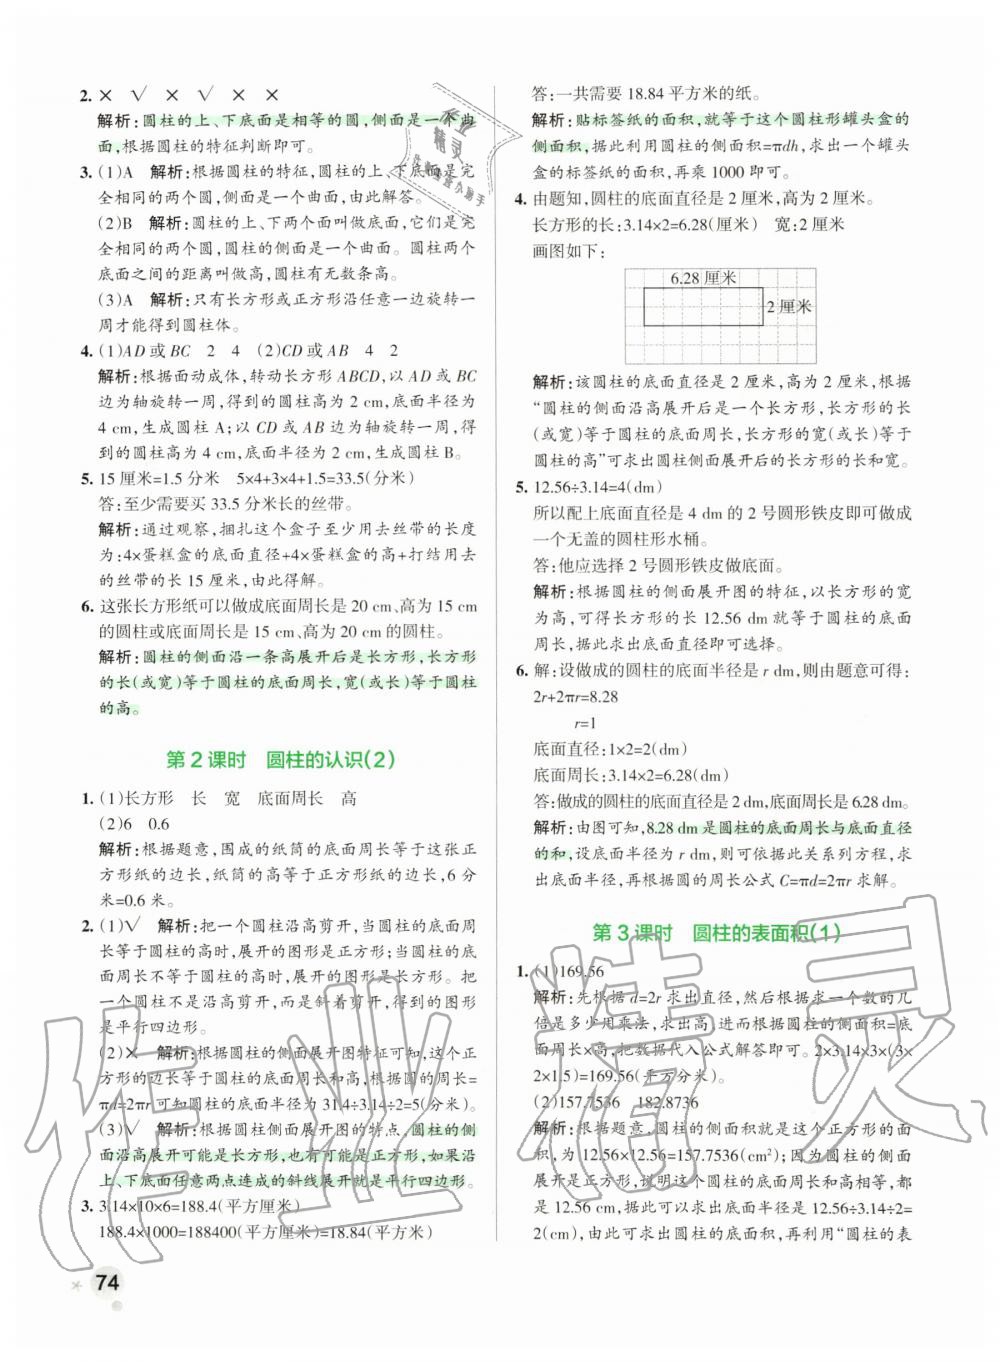 2. × √ × √ × ×
解析:圆柱的上、下底面是相等的圆,侧面是一个曲
面,根据圆柱的特征判断即可。
3. (1)A 解析:根据圆柱的特征,圆柱的上、下底面是完
全相同的两个圆,侧面是一个曲面,由此解答。
(2)B 解析:圆柱的上、下两个面叫做底面,它们是完
全相同的两个圆,圆柱的侧面是一个曲面。圆柱两个
底面之间的距离叫做高,圆柱有无数条高。
(3)A 解析:只有长方形或正方形沿任意一边旋转一
周才能得到圆柱体。
4. (1)AD或BC 2 4 (2)CD或AB 4 2
解析:根据面动成体,转动长方形ABCD,以AD或BC
边为轴旋转一周,得到的圆柱高为2 cm,底面半径为
4 cm,生成圆柱A;以CD或AB边为轴旋转一周,得
到的圆柱高为4 cm,底面半径为2 cm,生成圆柱B。
5. 15厘米=1.5分米 5×4+3×4+1.5=33.5(分米)
答:至少需要买33.5分米长的丝带。
解析:通过观察,捆扎这个盒子至少用去丝带的长度
为:4×蛋糕盒的底面直径+4×蛋糕盒的高+打结用去
的丝带的长15厘米,由此得解。
6. 这张长方形纸可以做成底面周长是20 cm、高为15 cm
的圆柱或底面周长是15 cm、高为20 cm的圆柱。
解析:圆柱的侧面沿一条高展开后是长方形,长方形
的长(或宽)等于圆柱的底面周长,宽(或长)等于圆柱
的高。
第2课时 圆柱的认识(2)
1. (1)长方形 长 宽 底面周长 高
(2)6 0.6
解析:根据题意,围成的纸筒的底面周长等于这张正
方形纸的边长,纸筒的高等于正方形纸的边长,6分
米=0.6米。
2. (1)√ 解析:把一个圆柱沿高剪开,当圆柱的底面周
长等于圆柱的高时,展开的图形是正方形;当圆柱的底
面周长不等于圆柱的高时,展开的图形是长方形。如果
一个圆柱不是沿高剪开,而是斜着剪开,得到的图形
是平行四边形。
(2)× 解析:根据圆柱的侧面展开图特征可知,这个正
方形的边长等于圆柱的底面周长,根据圆的周长=
πd=2πr可知圆柱的底面半径为31.4÷3.14÷2=5(分米)。
(3)√ 解析:根据圆柱侧面展开图的特点,圆柱的侧
面沿高展开可能是长方形,也有可能是正方形,如果沿
上、下底面任意两点连成的斜线展开就是平行四边形。
3. 3.14×10×6=188.4(平方厘米)
188.4×1000=188400(平方厘米)=18.84(平方米)
74
答:一共需要18.84平方米的纸。
解析:贴标签纸的面积,就等于这个圆柱形罐头盒的
侧面积,据此利用圆柱的侧面积=πdh,求出一个罐头
盒的标签纸的面积,再乘1000即可。
4. 由题知,圆柱的底面直径是2厘米,高为2厘米。
长方形的长:3.14×2=6.28(厘米) 宽:2厘米
画图如下:
6.28厘米
2厘米
解析:该圆柱的底面直径是2厘米,高为2厘米,根据
“圆柱的侧面沿高展开后是一个长方形,长方形的长
(或宽)等于圆柱的底面周长,长方形的宽(或长)等于
圆柱的高”可求出圆柱侧面展开后的长方形的长和宽。
5. 12.56÷3.14=4(dm)
所以配上底面直径是4 dm的2号圆形铁皮即可做成
一个无盖的圆柱形水桶。
答:他应选择2号圆形铁皮做底面。
解析:根据圆柱的侧面展开图的特征,以长方形的宽
为高,可得长方形的长12.56 dm就等于圆柱的底面
周长,据此求出底面直径即可选择。
6. 解:设做成的圆柱的底面半径是r dm,则由题意可得:
2r+2πr=8.28
r=1
底面直径:1×2=2(dm)
底面周长:3.14×2=6.28(dm)
答:做成的圆柱的底面直径是2 dm,底面周长是6.28 dm。
解析:由图可知,8.28 dm是圆柱的底面周长与底面直径
的和,设底面半径为r dm,则可依据此关系列方程,求
出底面半径,再根据圆的周长公式C=πd=2πr求解。
第3课时 圆柱的表面积(1)
1. (1)169.56
解析:先根据d=2r求出直径,然后根据求一个数的几
倍是多少用乘法,求出高,进而根据圆柱的侧面积=底
面周长×高,把数据代入公式解答即可。2×3.14×3×(3×
2×1.5)=169.56(平方分米)。
(2)157.7536 182.8736
解析:根据题意,圆柱的侧面积就是这个正方形的面
积,为12.56×12.56=157.7536(cm²);因为圆柱的侧面
展开是正方形,说明这个圆柱的底面周长和高相等,都
是12.56 cm,根据底面周长求出底面半径12.56÷3.14÷2=
2(cm),求出圆柱的底面积,再利用“圆柱的表
作业精灵
作业精灵